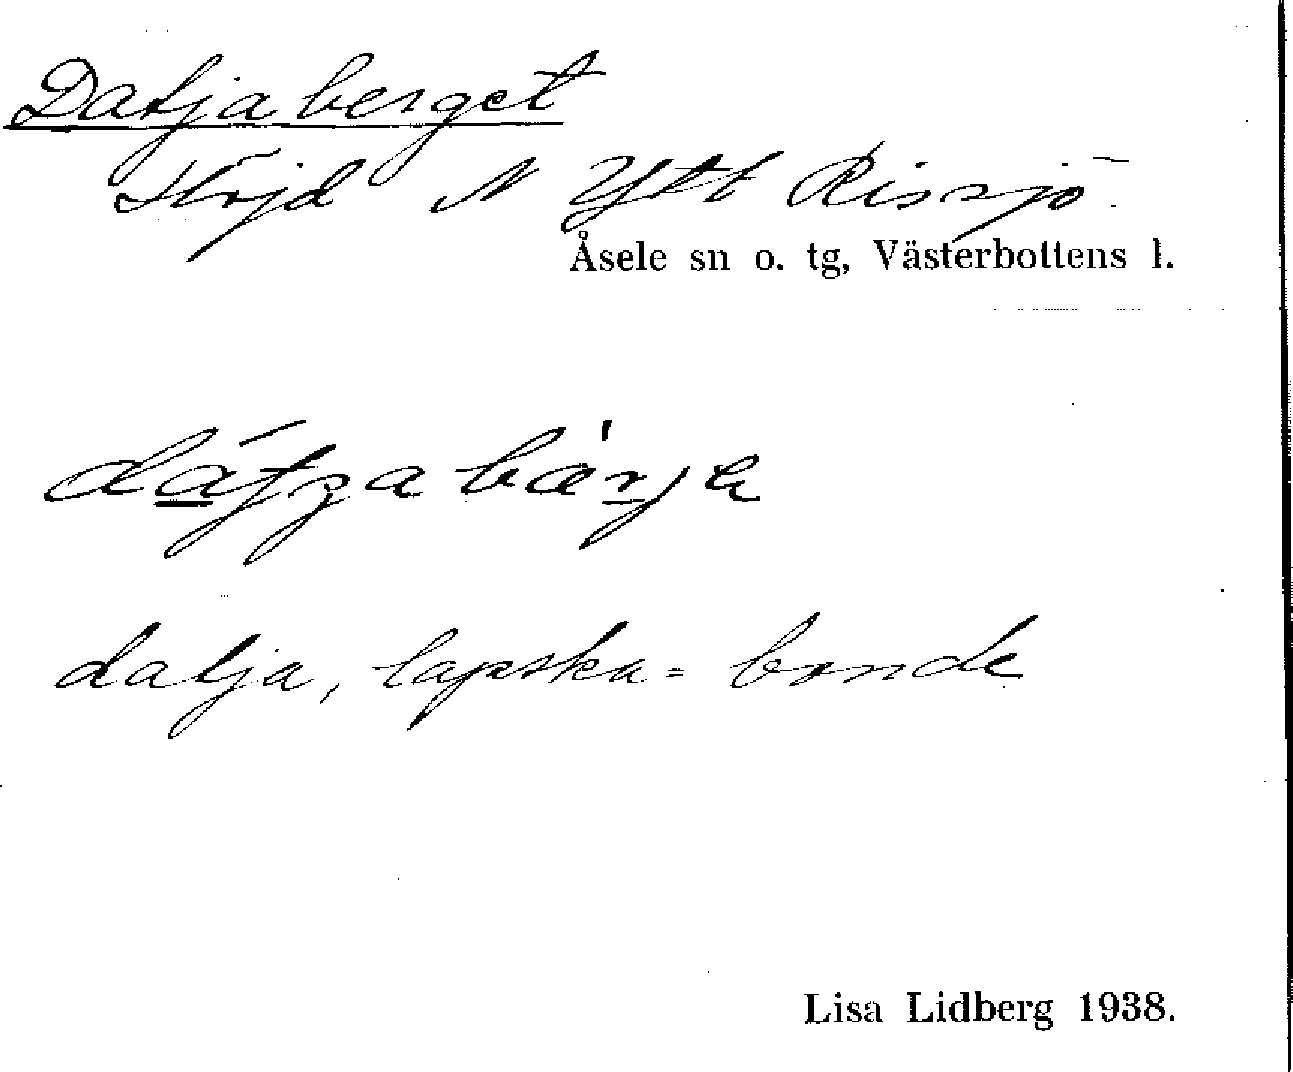 Datjaberget
Höjd N Ytt Rissjö.
Åsele sn o. tg, Västerbottens l.
datja, lapska = bonde
Lisa Lidberg 1938.